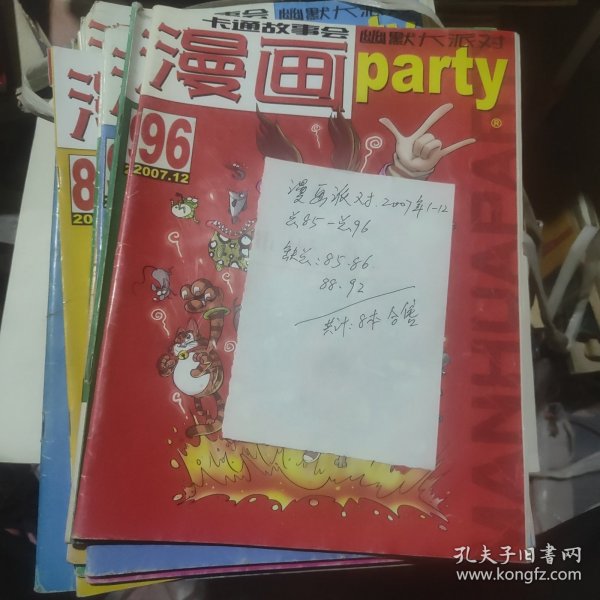 卡通故事会
幽默大派对
漫画
party
®
96
2007.12
8
20
漫画派对 2007年1-12
总85-总96
缺总:85.86
88.92
共计:8本 合售
MANHUAPA
孔夫子旧书网
www.kongfz.com